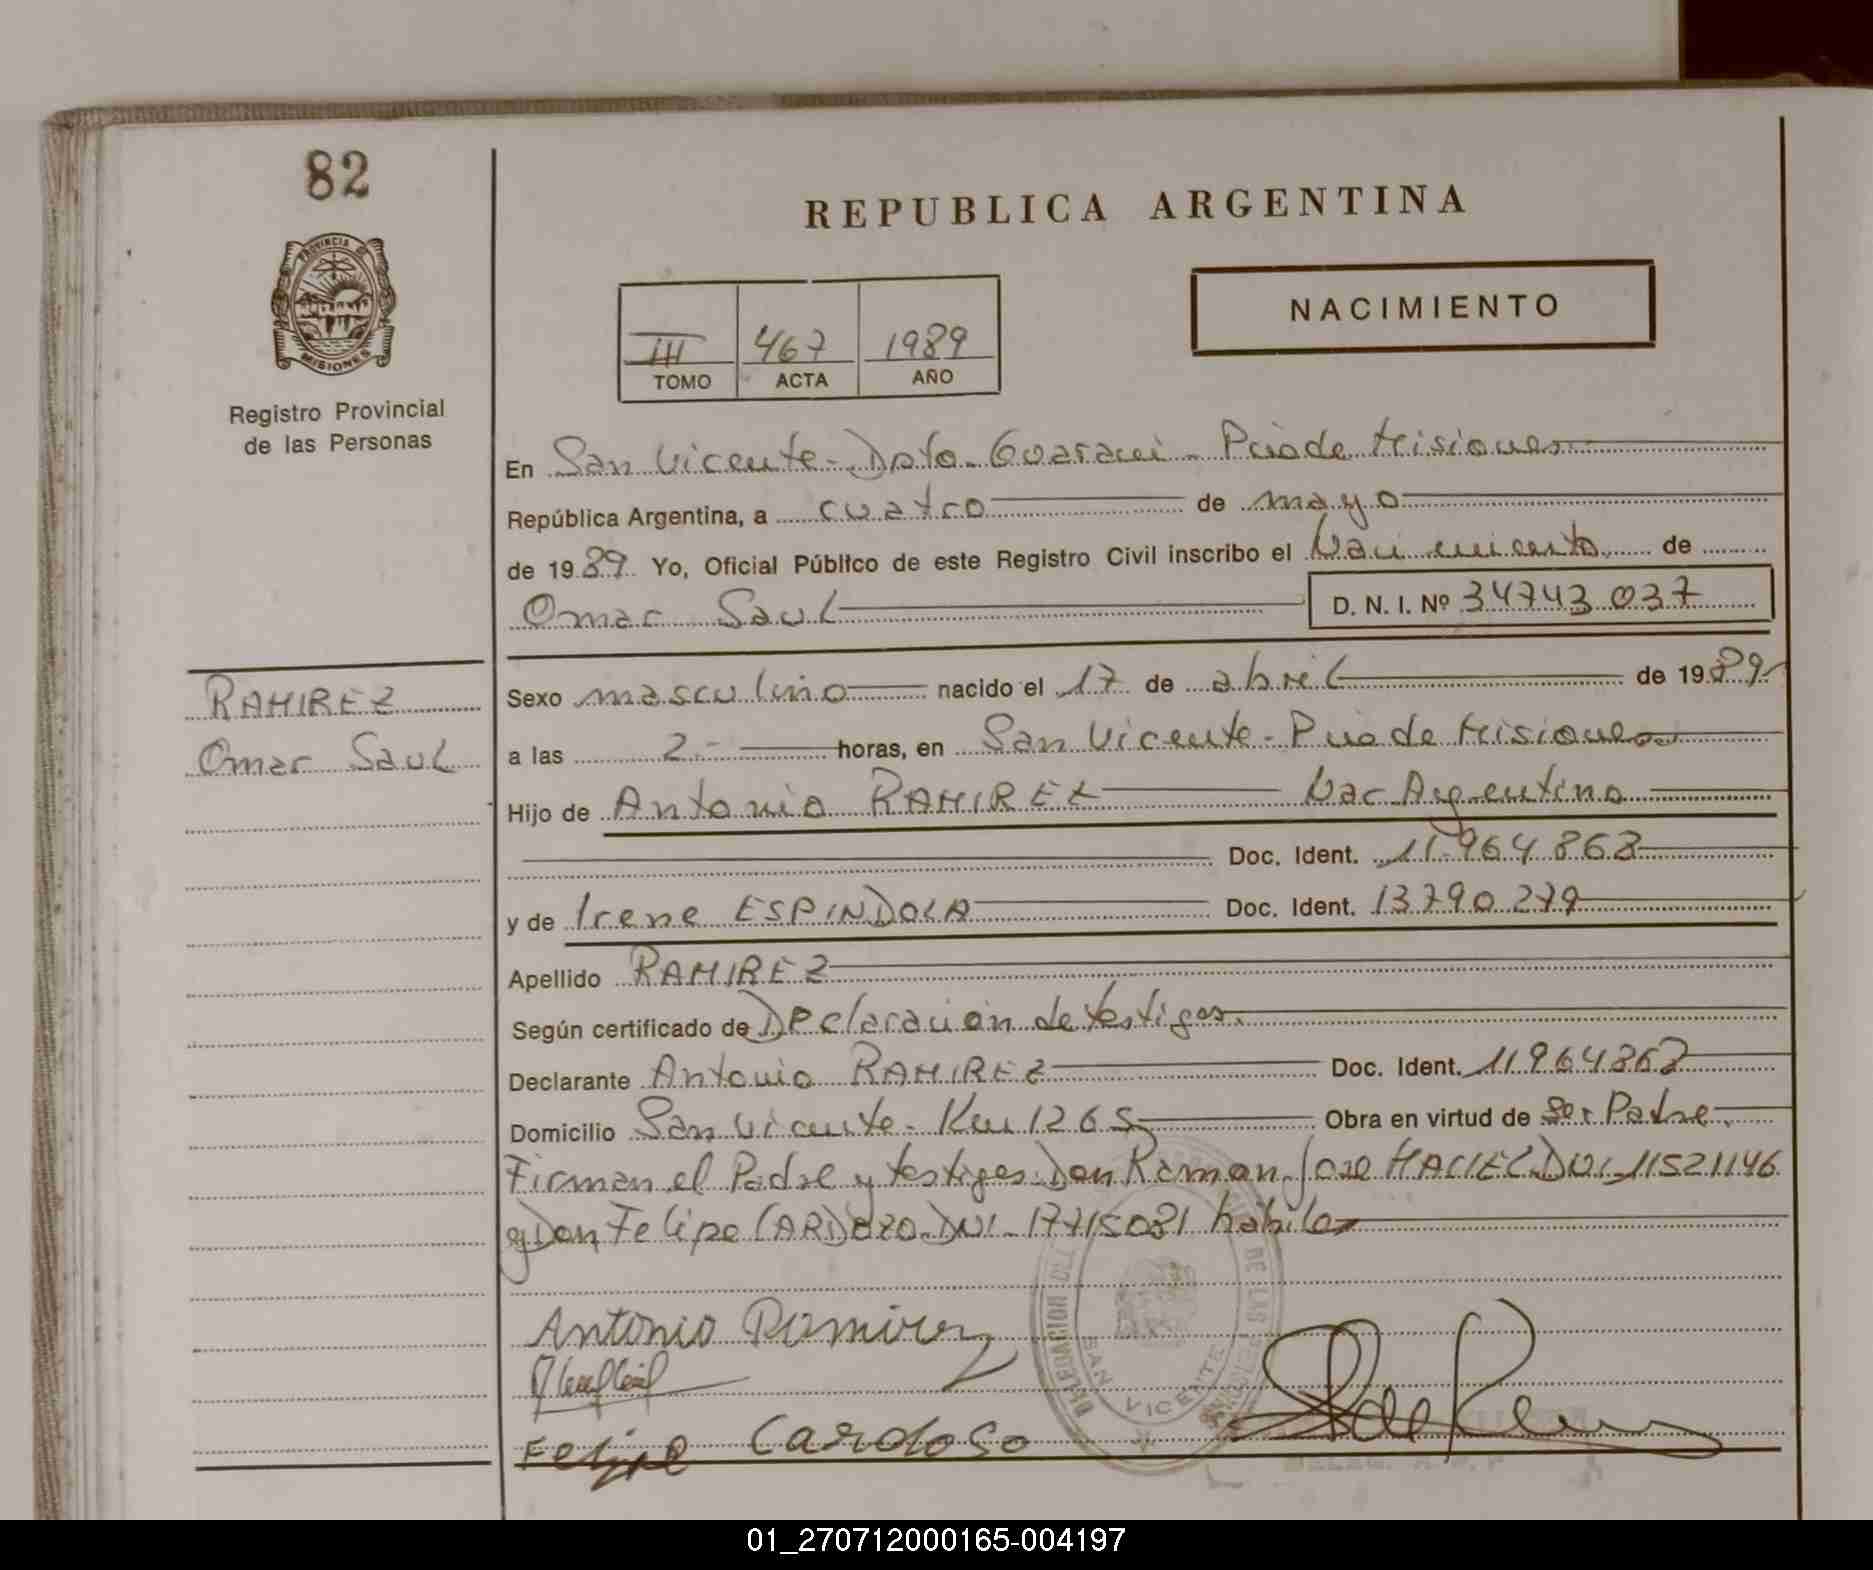 82
REPUBLICA ARGENTINA
PROVINCIA DE
MISIONES
Registro Provincial
de las Personas
NACIMIENTO
III 467 1989
TOMO ACTA AÑO
En San Vicente - Dpto. Guaraní - Pcia de Misiones
República Argentina, a cuatro de mayo
de 1989 Yo, Oficial Público de este Registro Civil inscribo el Nacimiento de
Omar Saul D. N. I. Nº 34743037
RAMIREZ
Omar Saul
Sexo masculino nacido el 17 de abril de 1989
a las 2.- horas, en San Vicente - Pcia de Misiones
Hijo de Antonio RAMIREZ Nac. Argentino
Doc. Ident. 11964868
y de Irene ESPINDOLA Doc. Ident. 13790279
Apellido RAMIREZ
Según certificado de Declaración de testigos.
Declarante Antonio RAMIREZ Doc. Ident. 11964868
Domicilio San Vicente - Km 1265 Obra en virtud de Ser Padre.
Firman el Padre y testigos Don Ramon Jose MACIEL DNI 11521146
y Don Felipe CARDOZO DNI - 17715081 habiles
Antonio Ramirez
Felipe Cardoso
DELEGACION DE LAS
SAN VICENTE
01_270712000165-004197